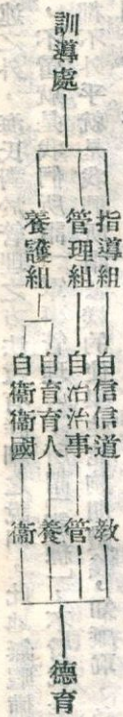 訓導處
指導組
管理組
養護組
自信信道
自治治事
自育育人
自衛衛國
教
管
養
衛
德育